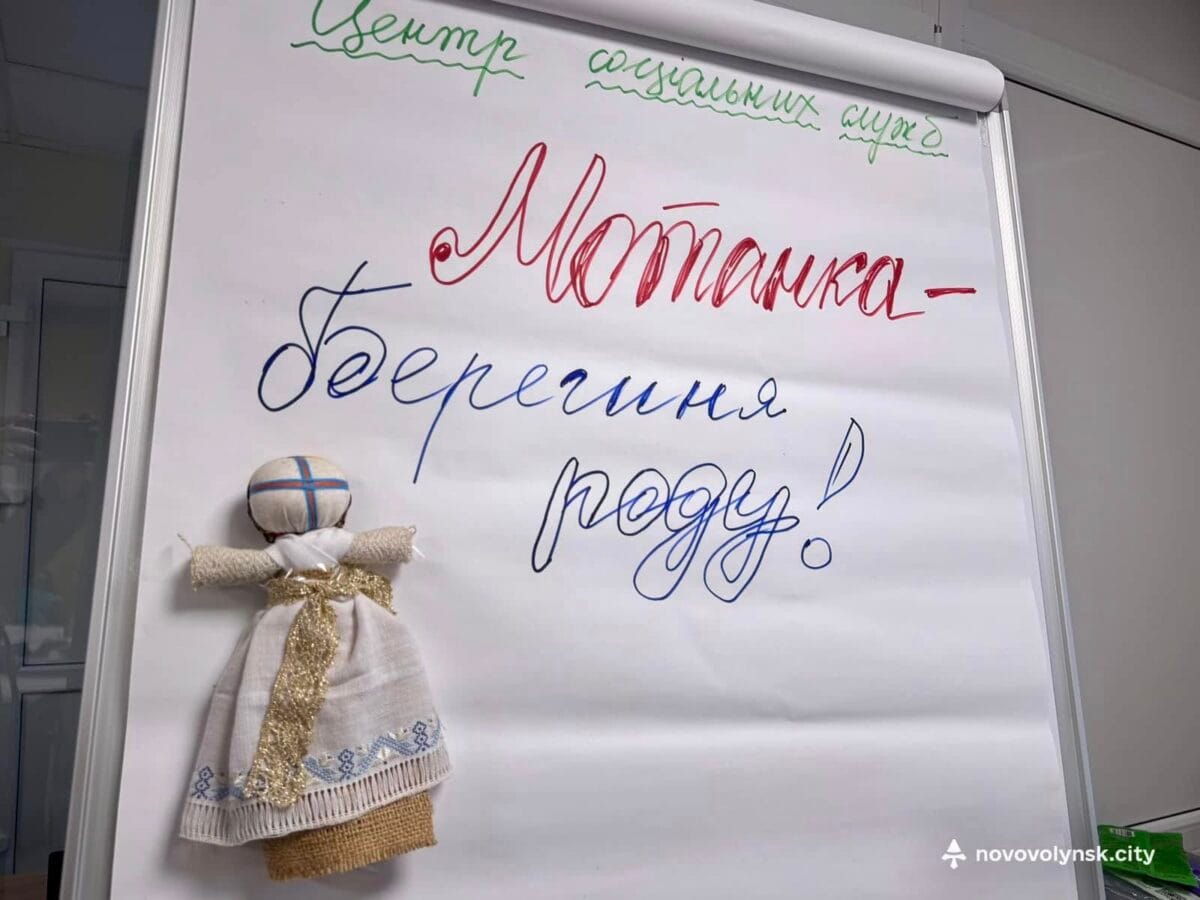 Центр соціальних служб
Мотанка -
берегиня
роду!
novovolynsk.city